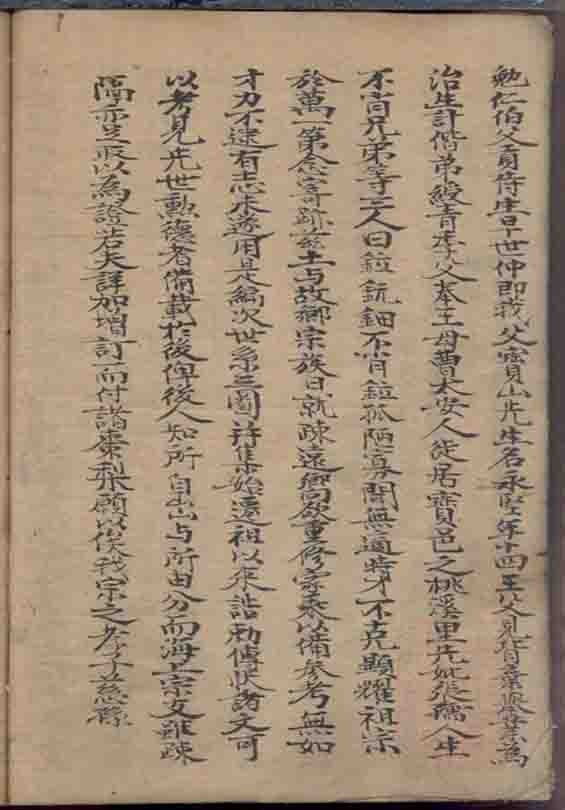 勉仁伯父貢侍生早世仲即我父寶山先生名承堅年十四王父見背棄舉業為
治生計偕弟綬青季父奉王母曹太安人徙居寶邑之桃溪里先妣張孺人生
不肖兄弟等三人曰鉝鈧鈿不肖鉝孤陋寡聞無適時才不克顯耀祖宗
於萬一第念寄跡茲土与故鄉宗族日就疎遠嚮欲重修家乘以備參考無如
才力不逮有志未遂用是編次世系三圖并集始遷祖以來誥勅傳狀諸文可
以考見先世勲德者備載於後俾後人知所自出与所由分而海上宗支雖疎
隔亦足取以為證若夫詳加增訂而付諸棗梨願以俟我宗之孝子慈孫